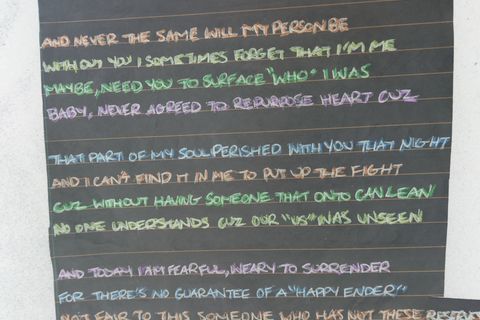 AND NEVER THE SAME WILL MY PERSON BE
WITHOUT YOU I SOMETIMES FORGET THAT I'M ME
MAYBE, NEED YOU TO SURFACE "WHO" I WAS
BABY, NEVER AGREED TO REPURPOSE HEART CUZ
THAT PART OF MY SOUL PERISHED WITH YOU THAT NIGHT
AND I CAN'T FIND IT IN ME TO PUT UP THE FIGHT
CUZ WITHOUT HAVING SOMEONE THAT ONTO CAN LEAN
NO ONE UNDERSTANDS CUZ OUR "US" WAS UNSEEN
AND TODAY I AM FEARFUL, WEARY TO SURRENDER
FOR THERE'S NO GUARANTEE OF A "HAPPY ENDER"
NOT FAIR TO THIS SOMEONE WHO HAS NOT THESE